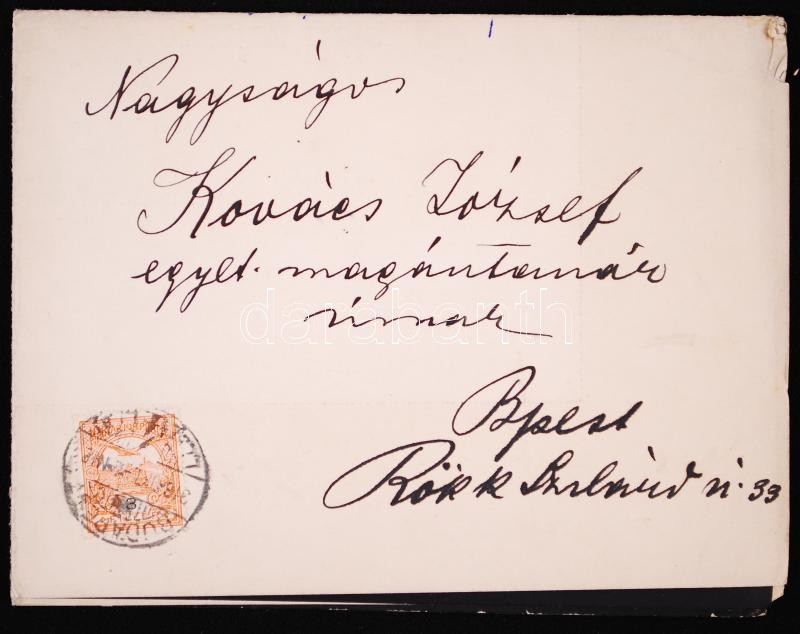 Nagyságos
Kovács József
egyet. magántanár
úrnak
Bpest
Rökk Szilárd u. 33
darabanth
BUDAP